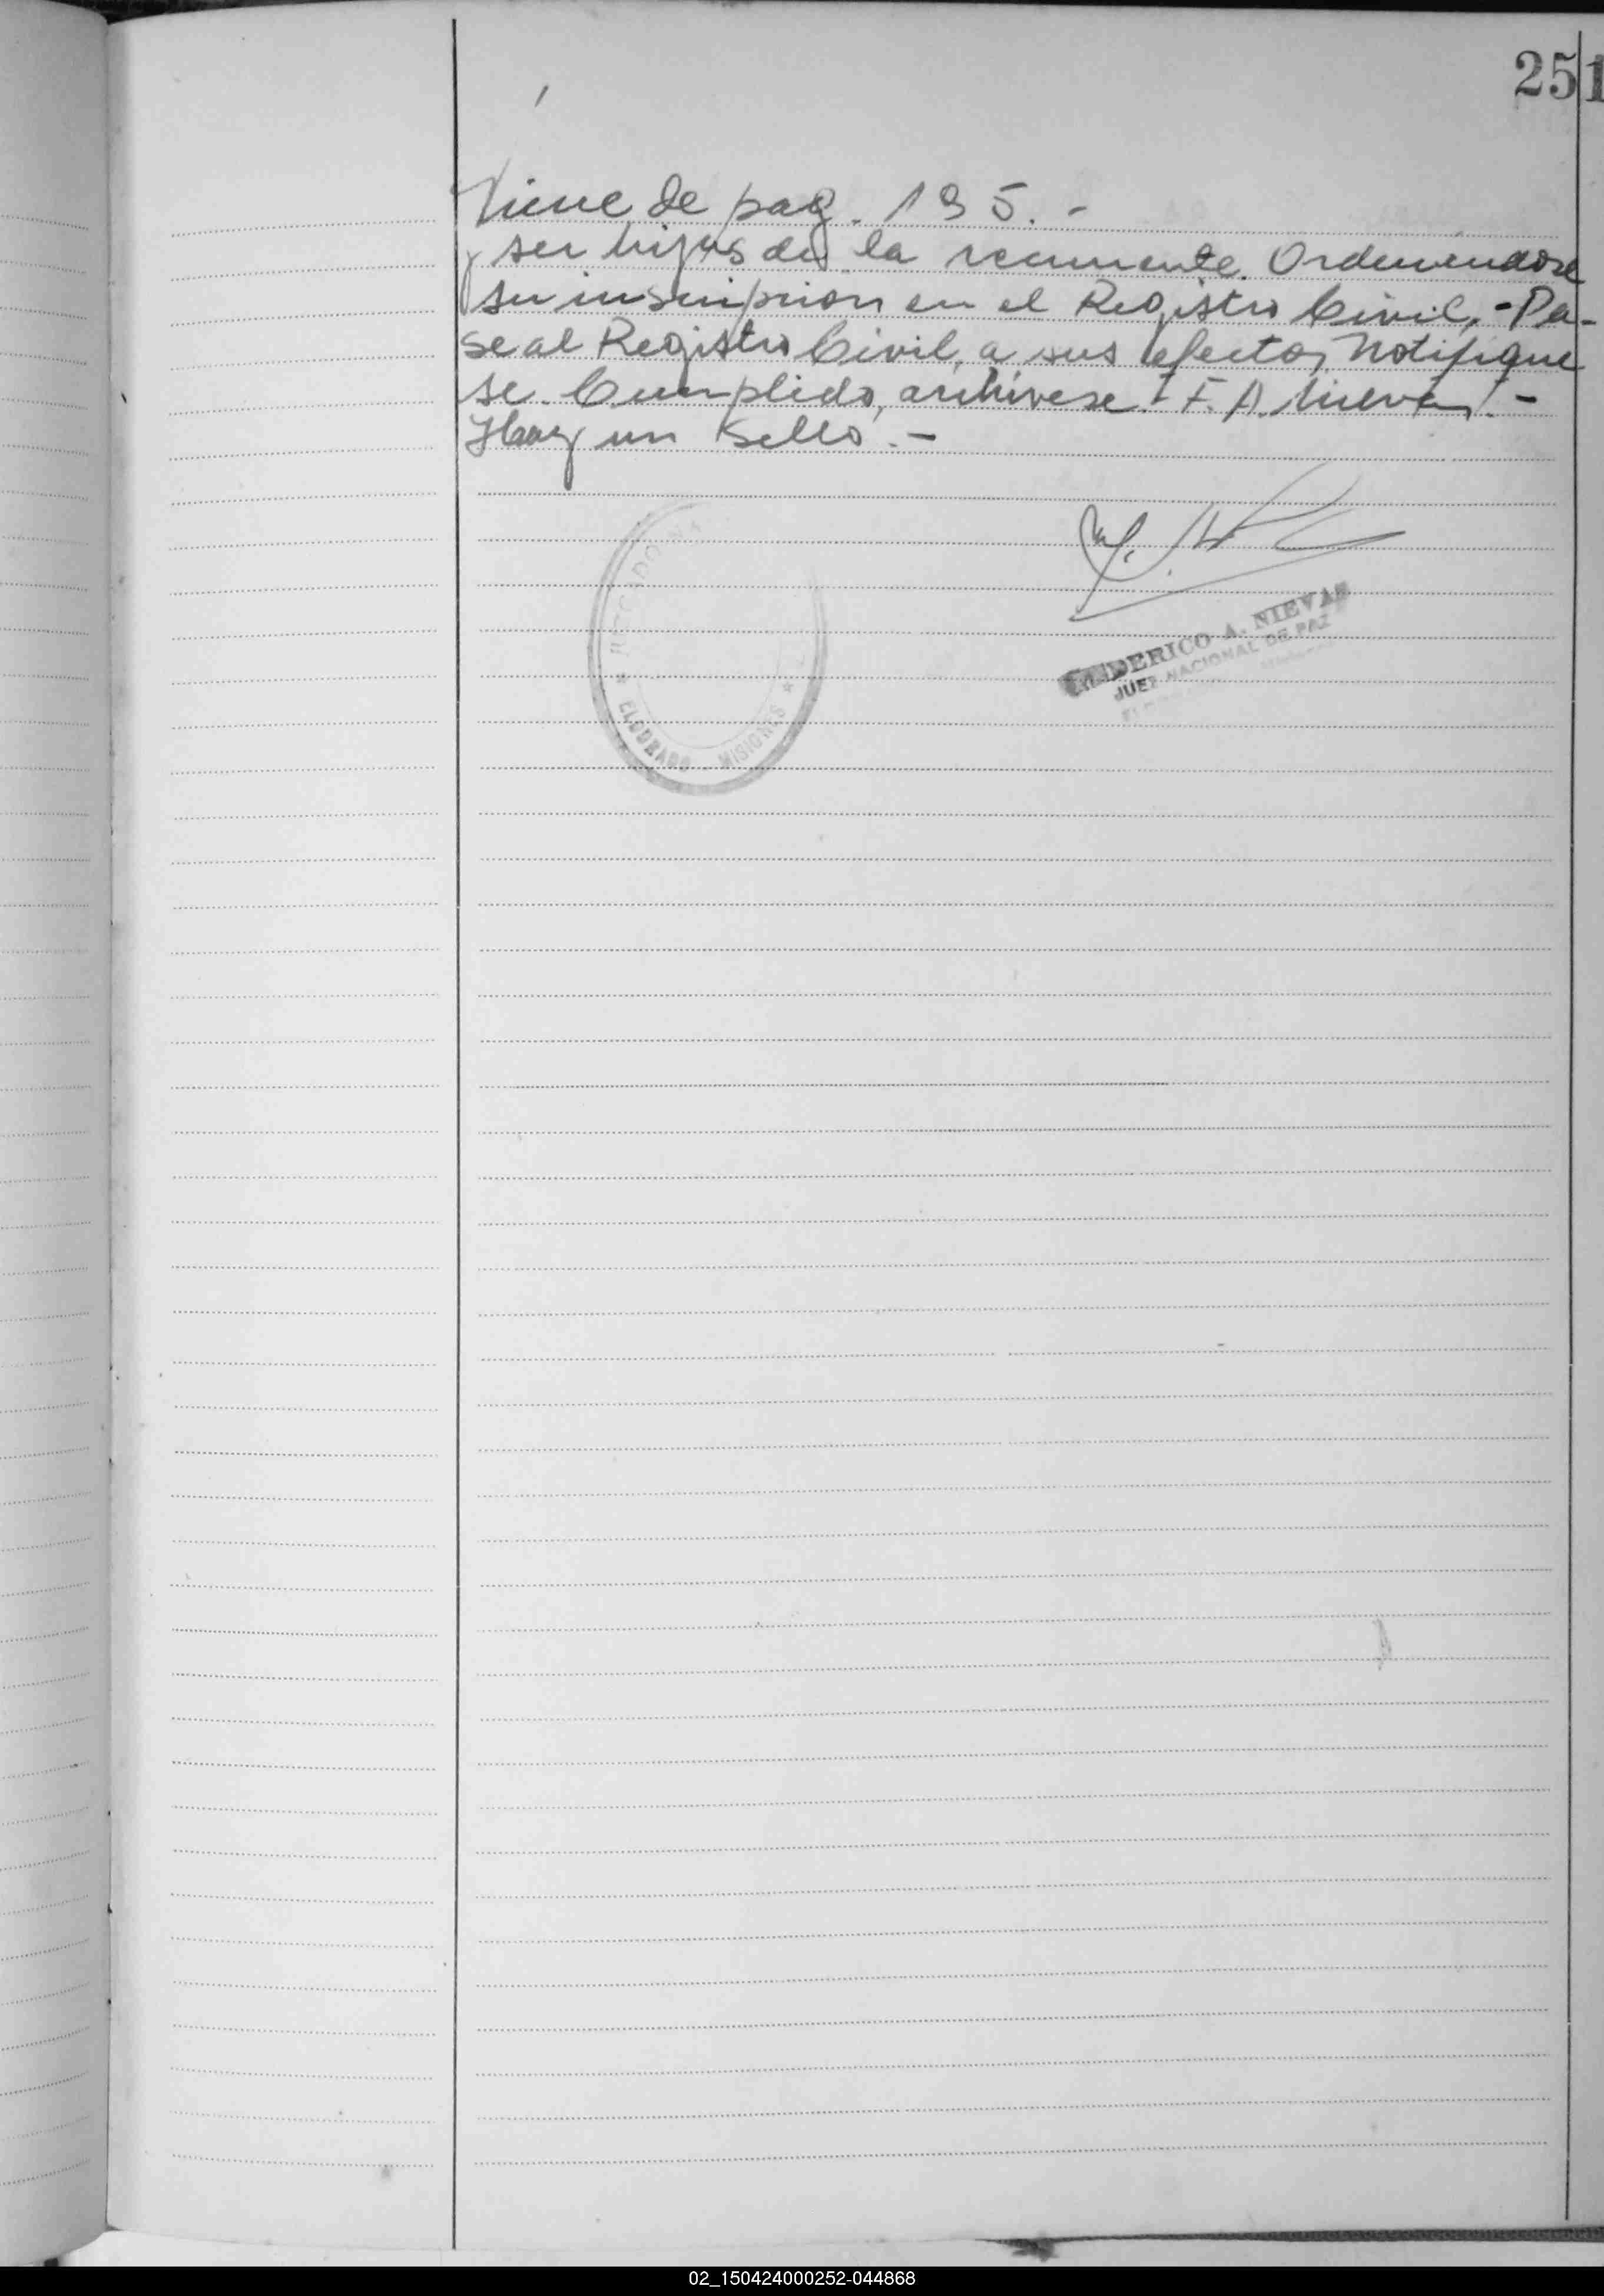 251
Viene de pag. 195.-
y ser hijas de la recurrente. Ordenendose
su inscripcion en el Registro Civil,-Pa-
se al Registro Civil, a sus efectos, Notifique
se. Cumplido, archivese.- F. A. Nievas.-
Hay un sello.-
FEDERICO A. NIEVAS
JUEZ NACIONAL DE PAZ
★ ELDORADO - MISIONES ★
02_150424000252-044868